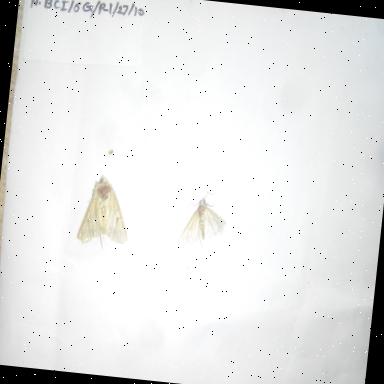 N. BCI/6G/R1/27/10